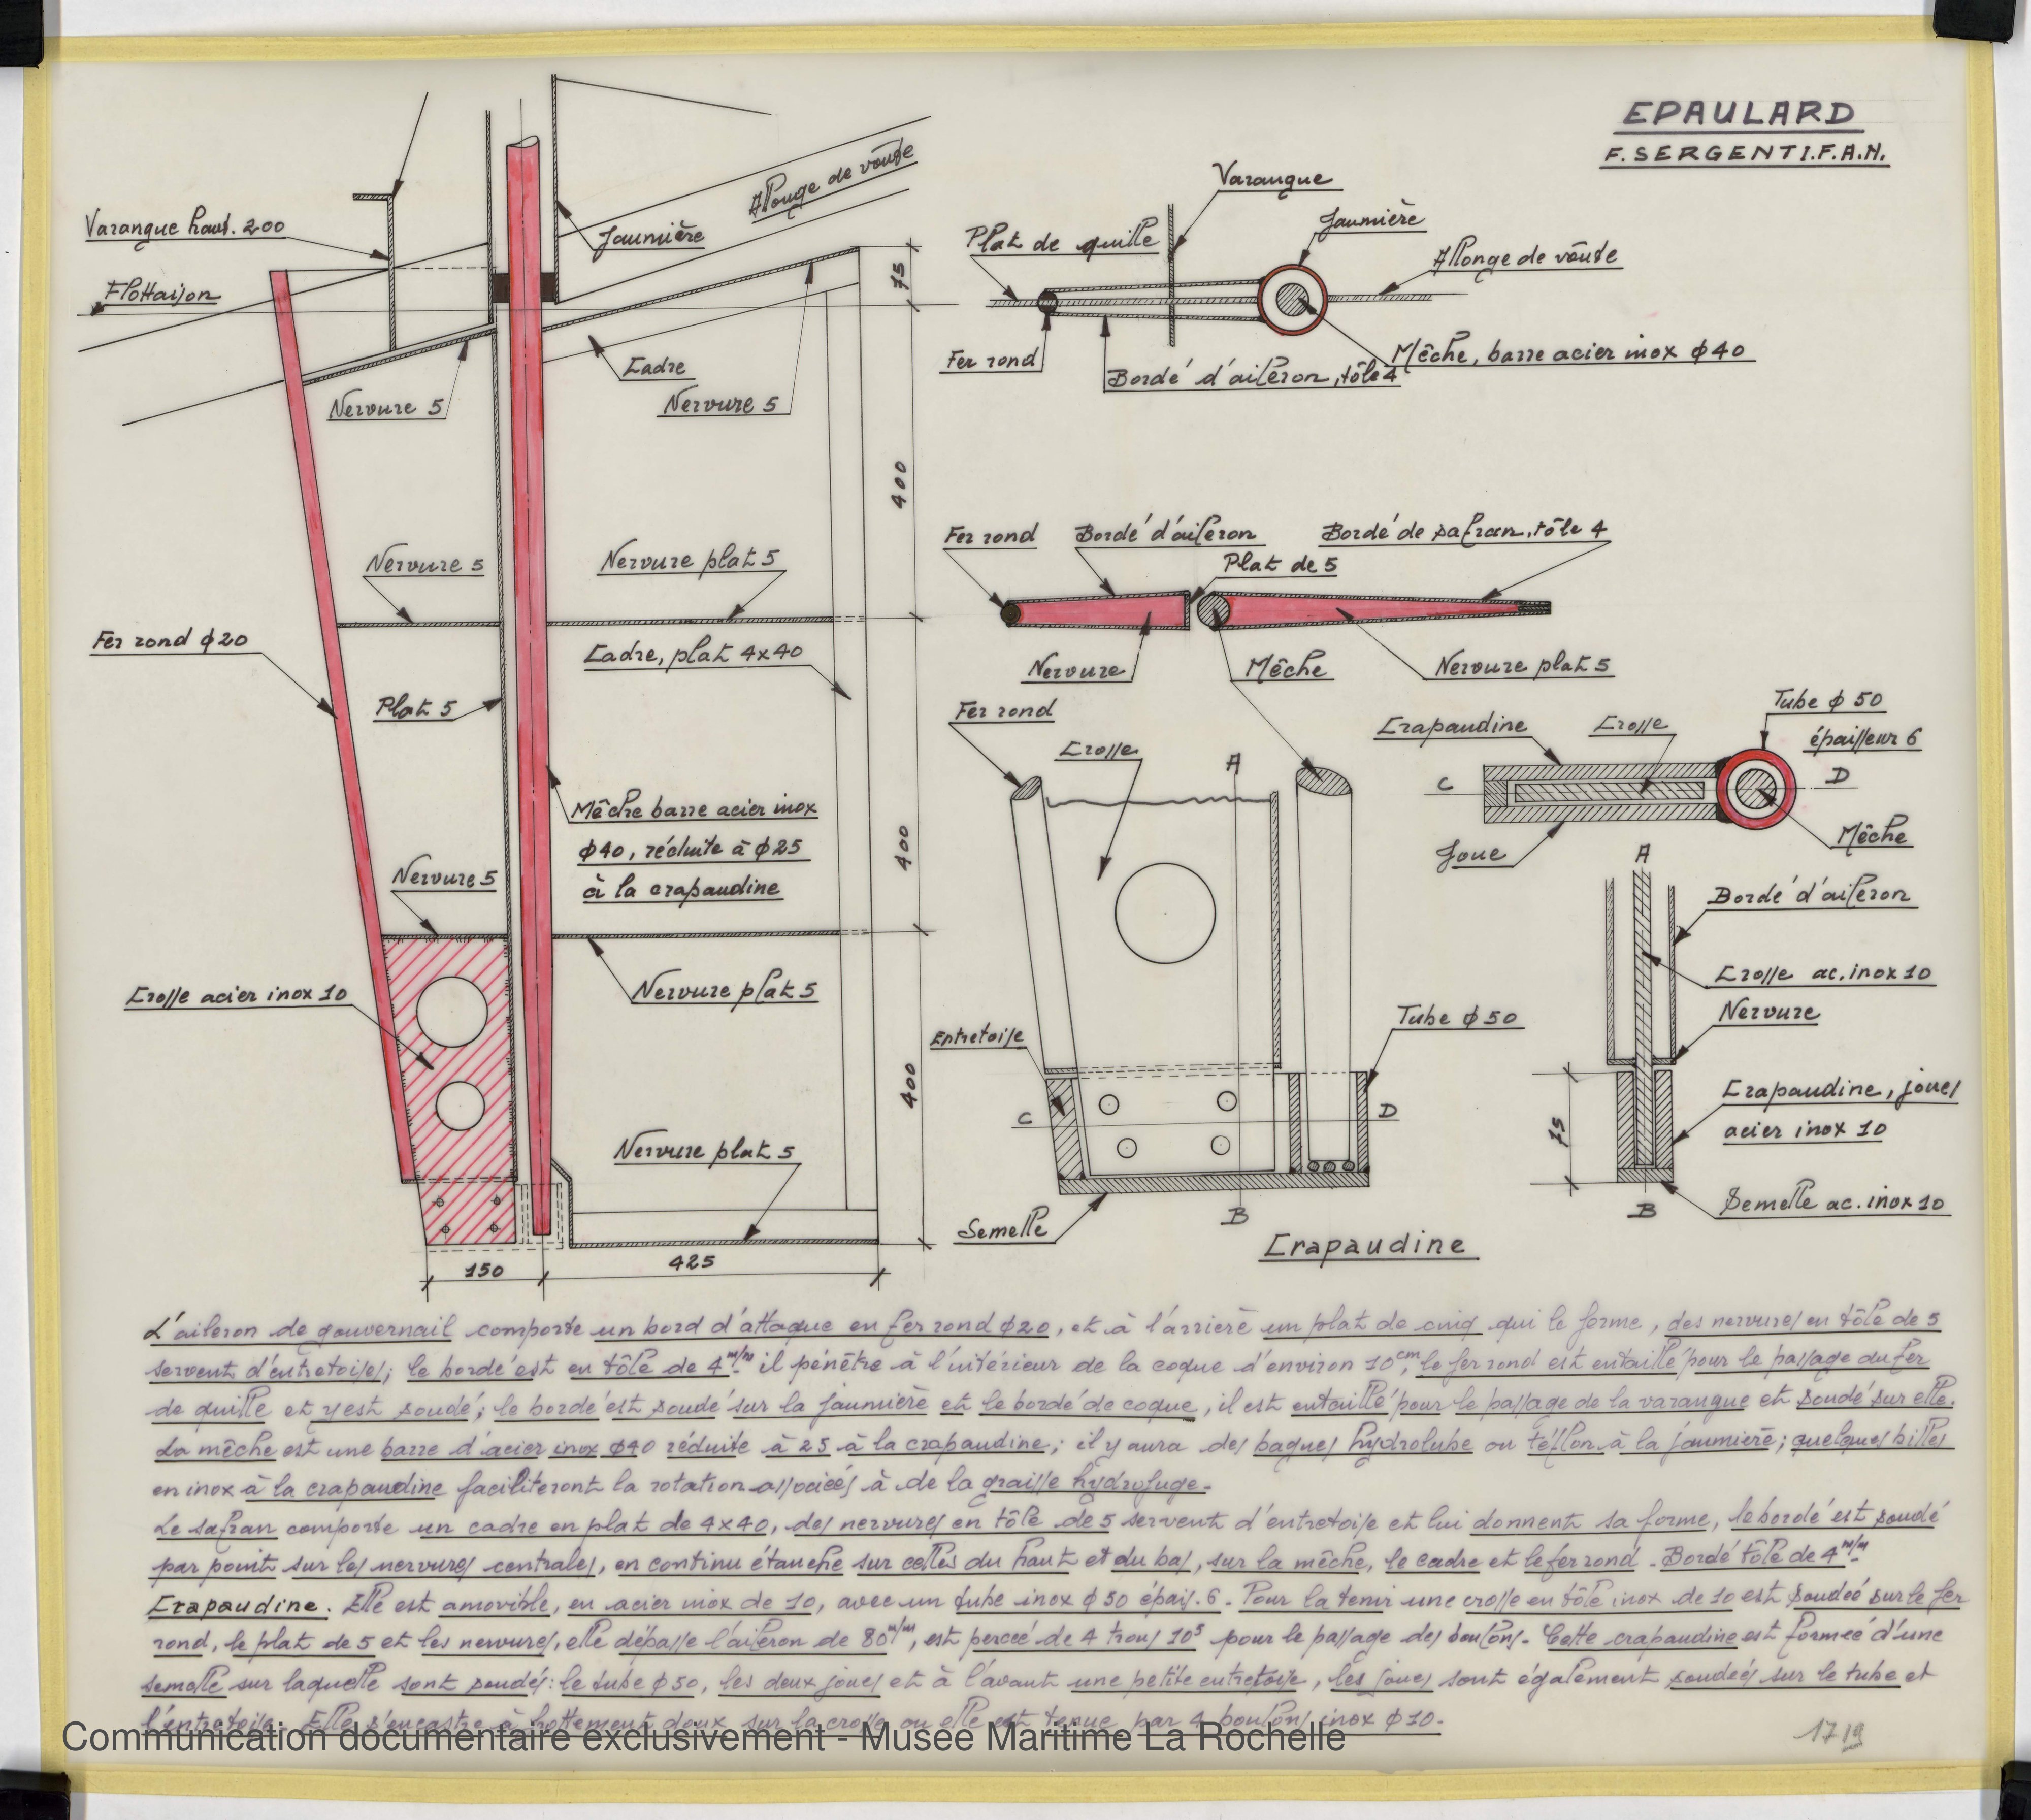 EPAULARD
F. SERGENT I.F.A.N.
Varangue haut. 200
Flottaison
Jaumière
Allonge de voûte
75
Cadre
Nervure 5
Nervure 5
400
Nervure 5
Nervure plat 5
Fer rond ϕ20
Cadre, plat 4x40
Plat 5
Mêche barre acier inox
ϕ40, réduite à ϕ25
à la crapaudine
400
Nervure 5
Crosse acier inox 10
Nervure plat 5
400
Nervure plat 5
150
425
Varangue
Plat de quille
Jaumière
Allonge de voûte
Fer rond
Bordé d'aileron, tôle 4
Mêche, barre acier inox ϕ40
Fer rond
Bordé d'aileron
Bordé de safran, tôle 4
Plat de 5
Nervure
Mêche
Nervure plat 5
Fer rond
Crosse
A
Entretoise
Tube ϕ 50
C
D
Semelle
B
Crapaudine
Crapaudine
Crosse
Tube ϕ 50
épaisseur 6
C
D
Joue
Mêche
A
Bordé d'aileron
Crosse ac. inox 10
Nervure
75
Crapaudine, joues
acier inox 10
Semelle ac. inox 10
B
L'aileron de gouvernail comporte un bord d'attaque en fer rond ϕ20, et à l'arrière un plat de cinq qui le forme, des nervures en tôle de 5
servent d'entretoises; le bordé est en tôle de 4 m/m il pénètre à l'intérieur de la coque d'environ 10 cm, le fer rond est entaillé pour le passage du fer
de quille et y est soudé; le bordé est soudé sur la jaumière et le bordé de coque, il est entaillé pour le passage de la varangue et soudé sur elle.
La mêche est une barre d'acier inox ϕ40 réduite à 25 à la crapaudine; il y aura des bagues hydrolube ou téflon à la jaumière; quelques billes
en inox à la crapaudine faciliteront la rotation associées à de la graisse hydrofuge.
Le safran comporte un cadre en plat de 4x40, des nervures en tôle de 5 servent d'entretoise et lui donnent sa forme, le bordé est soudé
par point sur les nervures centrales, en continu étanche sur celles du haut et du bas, sur la mêche, le cadre et le fer rond - Bordé tôle de 4 m/m
Crapaudine. Elle est amovible, en acier inox de 10, avec un tube inox ϕ 50 épais. 6 - Pour la tenir une crosse en tôle inox de 10 est soudée sur le fer
rond, le plat de 5 et les nervures, elle dépasse l'aileron de 80 m/m, est percée de 4 trous 10⁵ pour le passage des boulons. Cette crapaudine est formée d'une
semelle sur laquelle sont soudés: le tube ϕ 50, les deux joues et à l'avant une petite entretoise, les joues sont également soudées sur le tube et
l'entretoise. Elle s'encastre à frottement doux sur la crosse ou elle est tenue par 4 boulons inox ϕ 10.
Communication documentaire exclusivement - Musée Maritime La Rochelle
1719